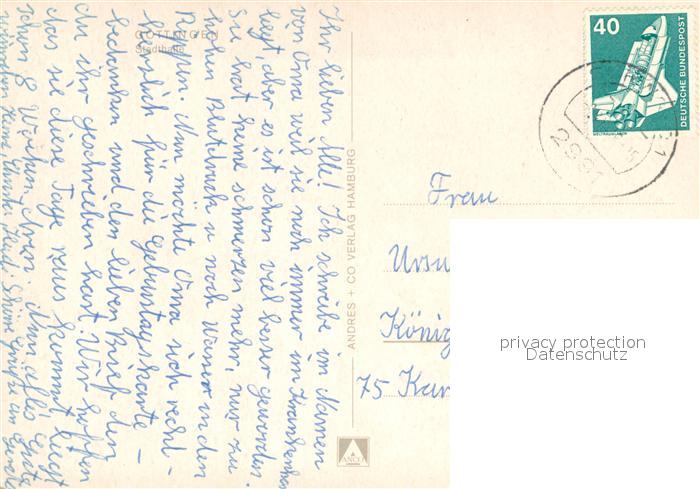 GÖTTINGEN
Stadthalle
Ihr lieben Alle! Ich schreibe im Namen
von Oma weil sie noch immer im Krankenhaus
liegt, aber es ist schon viel besser geworden.
Sie hat keine schmerzen mehr, nur zu
hohen Blutdruck u noch Wasser in den
Rippen. Nun möchte Oma sich recht-
herzlich für die Geburtstagskarte -
bedanken und den lieben Brief den
du ihr geschrieben hast. Wir hoffen
das sie diese Tage raus kommt liegt
schon 8 Wochen drin. Nun alles Gute
wünschen Heinz,
ANDRES + CO VERLAG HAMBURG
ANCO
40
DEUTSCHE BUNDESPOST
WELTRAUMLABOR
2991
Frau
Ursu
König
75 Kar
privacy protection
Datenschutz